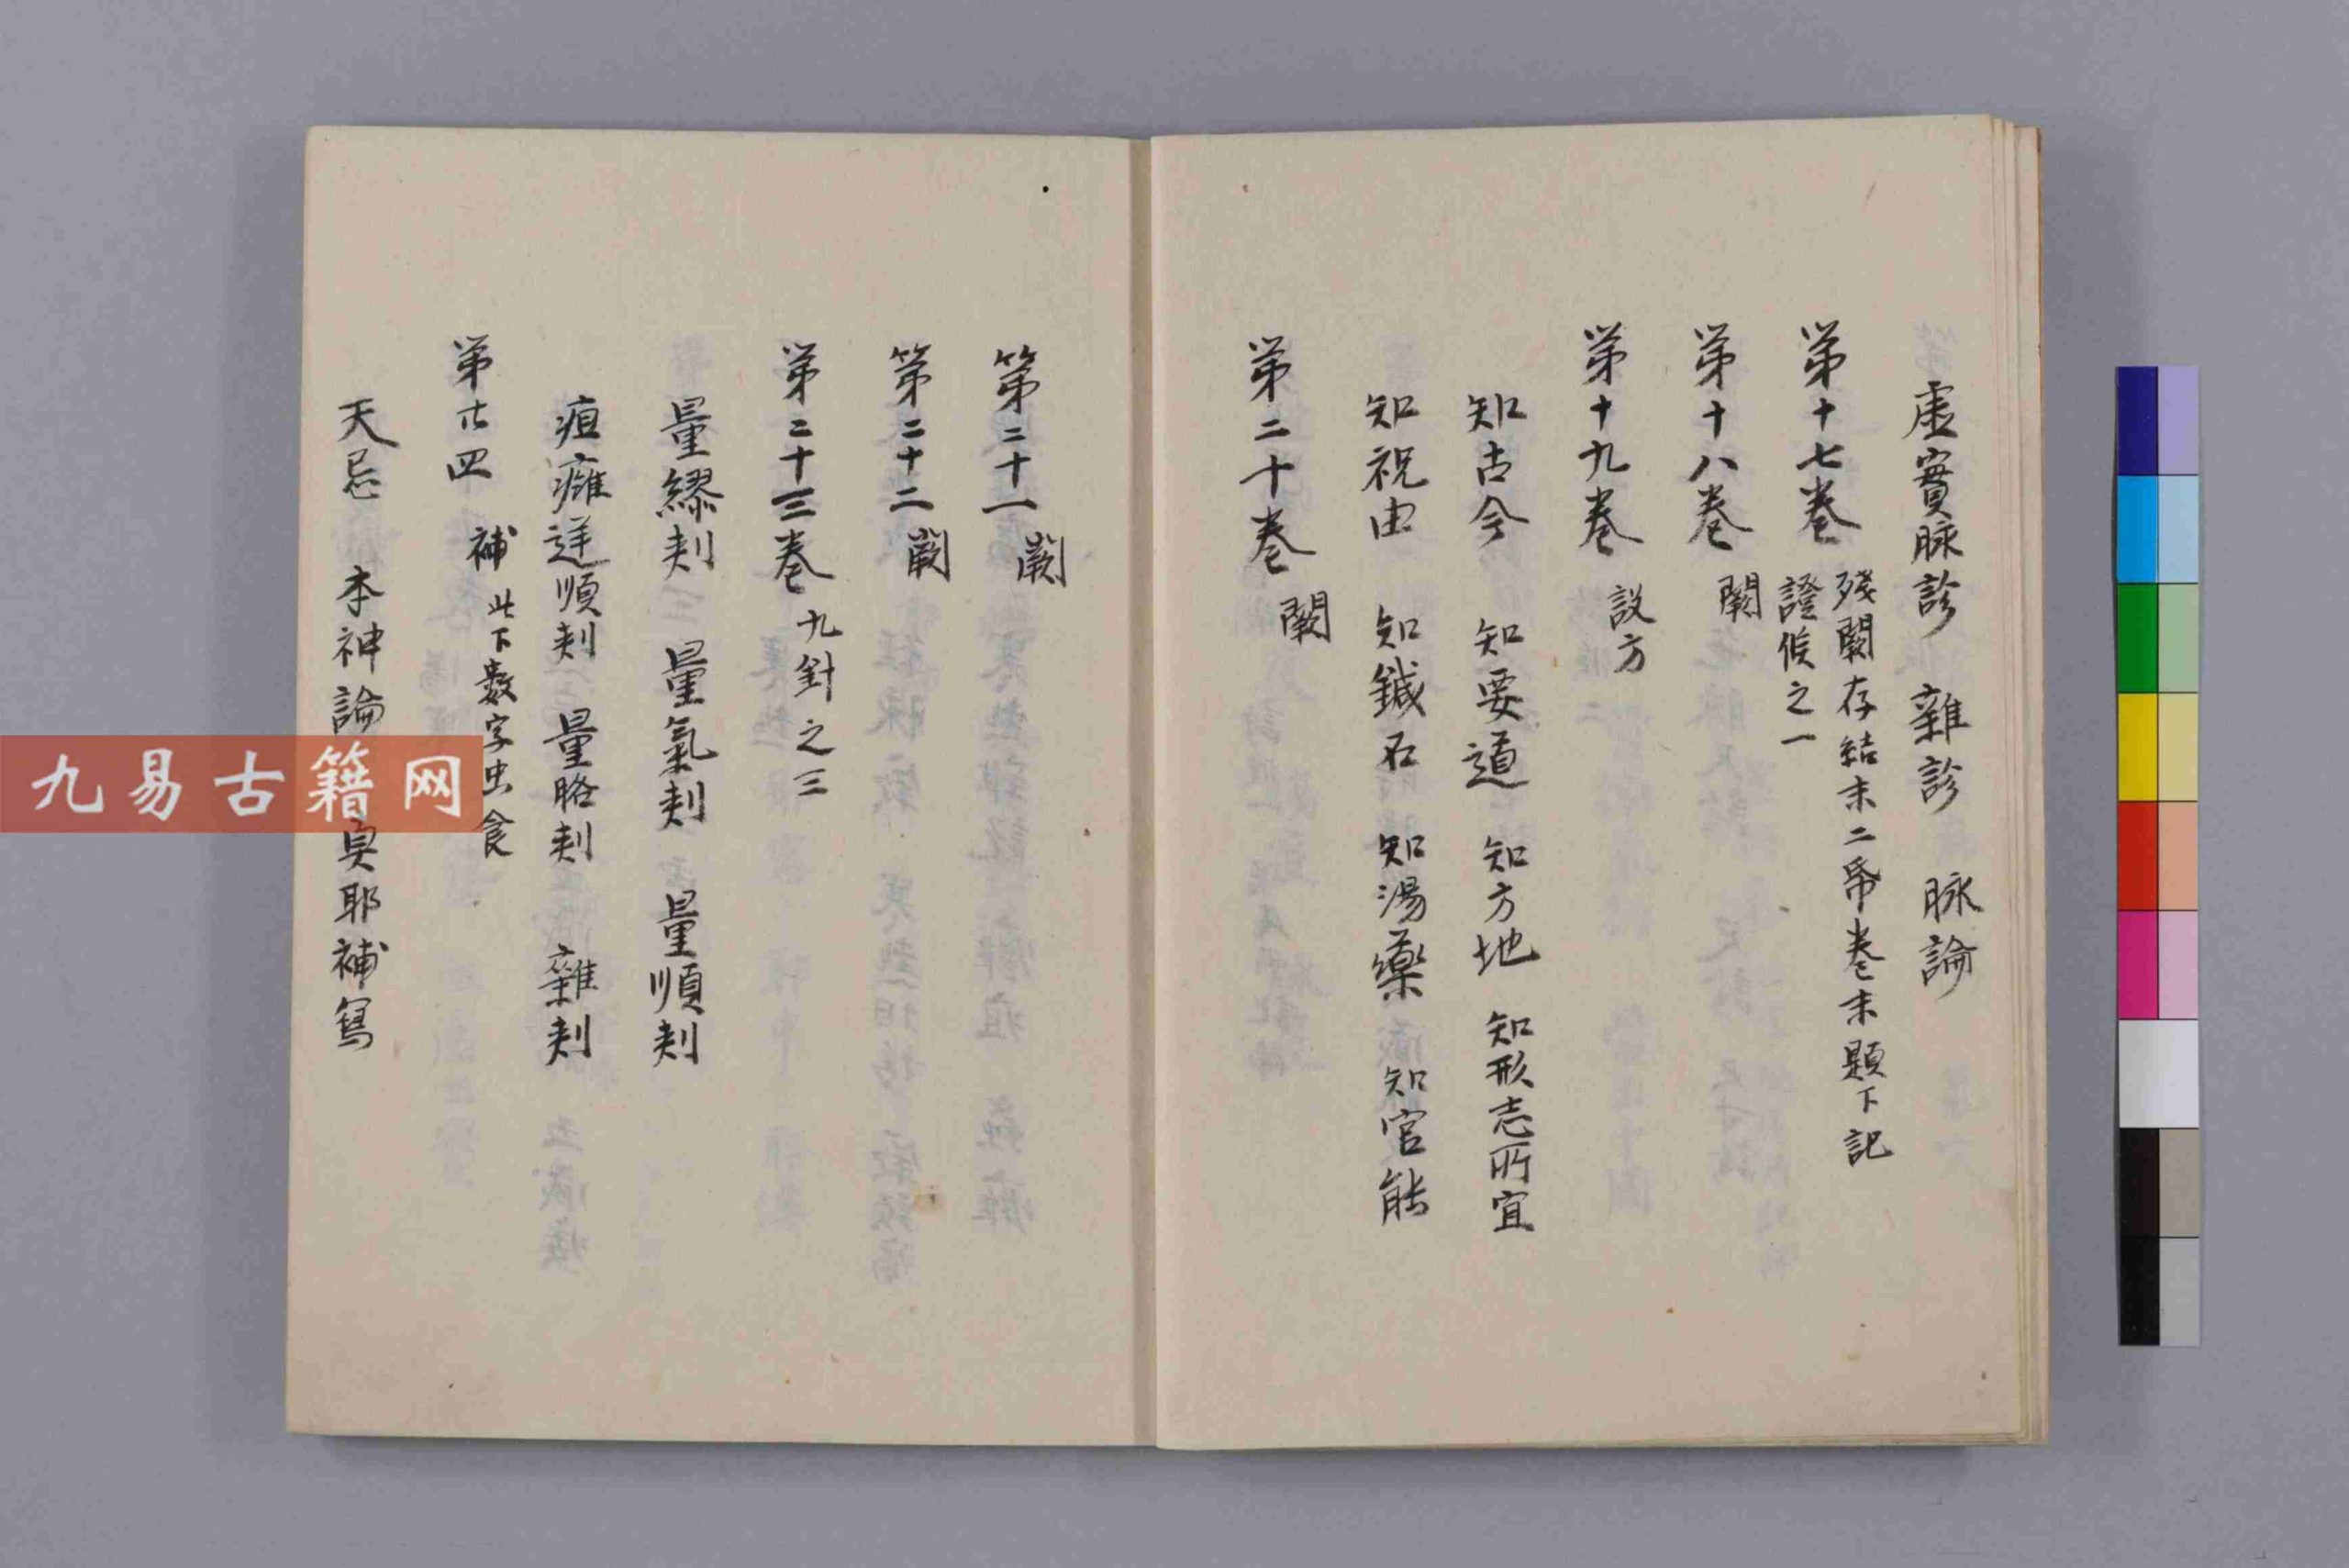 虛實脉診 雜診 脉論
第十七卷 殘闕存結末二帋卷末題下記
證候之一
第十八卷 闕
第十九卷 設方
知古今 知要道 知方地 知形志所宜
知祝由 知鍼石 知湯藥 知官能
第二十卷 闕
第二十一 闕
第二十二 闕
第二十三卷 九針之三
量繆刺 量氣刺 量順刺
疽癰逆順刺 量胳刺 雜刺
第廿四 補 此下数字虫食
天忌 本神論 眞耶補寫
九易古籍网